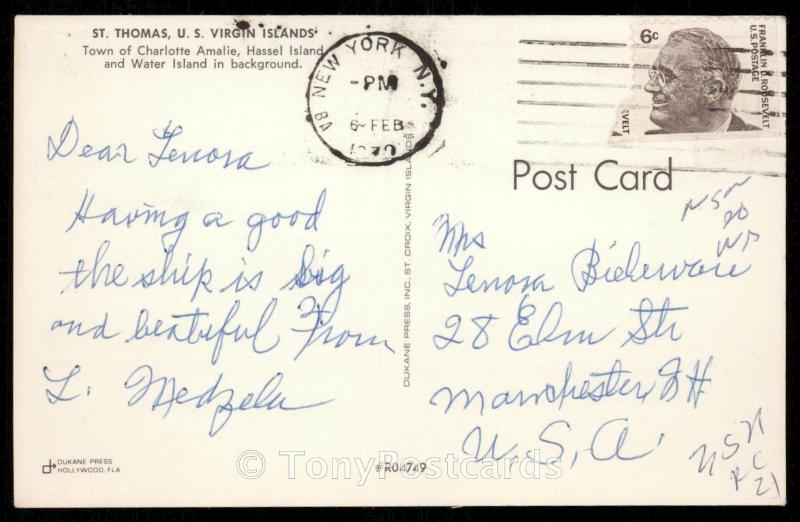 ST. THOMAS, U. S. VIRGIN ISLANDS
Town of Charlotte Amalie, Hassel Island
and Water Island in background.
NEW YORK, N.Y.
-PM
6-FEB
1970
6c
FRANKLIN D. ROOSEVELT
U.S. POSTAGE
EVELT
Post Card
Dear Lenora
Having a good
the ship is big
and beatiful From
L. Medzela
DUKANE PRESS, INC. ST. CROIX, VIRGIN ISLANDS
Mrs
Lenora
28 Elm Str
Manchester N H
U. S. A.
DUKANE PRESS
HOLLYWOOD, FLA
#R04749
© TonyPostcards